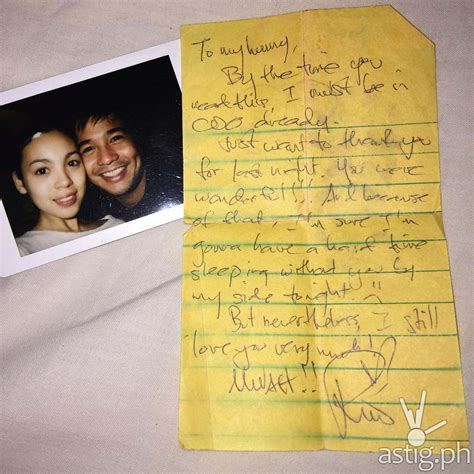 To my hunny,
By the time you
read this, I must be in
CDO already.
Just want to thank you
for last night. You were
wonderful!!! And because
of that, I'm sure I'm
gonna have a hard time
sleeping without you by
my side tonight!!
But nevertheless, I still
love you very much!
MWAH!!
astig.ph